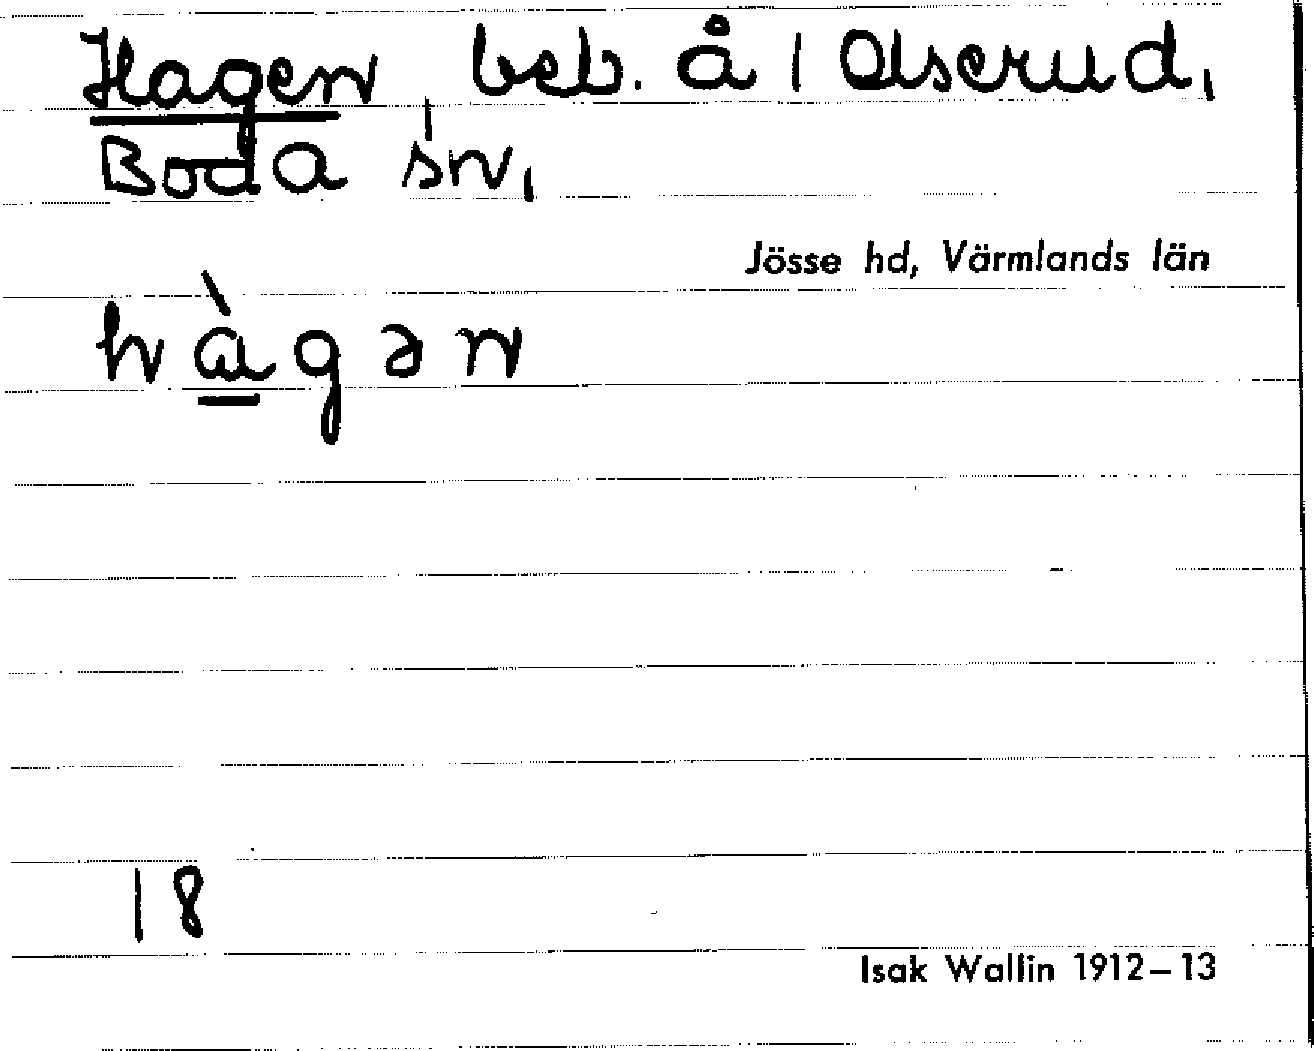 Hagen, beb. å 1 Olserud,
Boda sn,
Jösse hd, Värmlands län
hàgən
18
Isak Wallin 1912–13